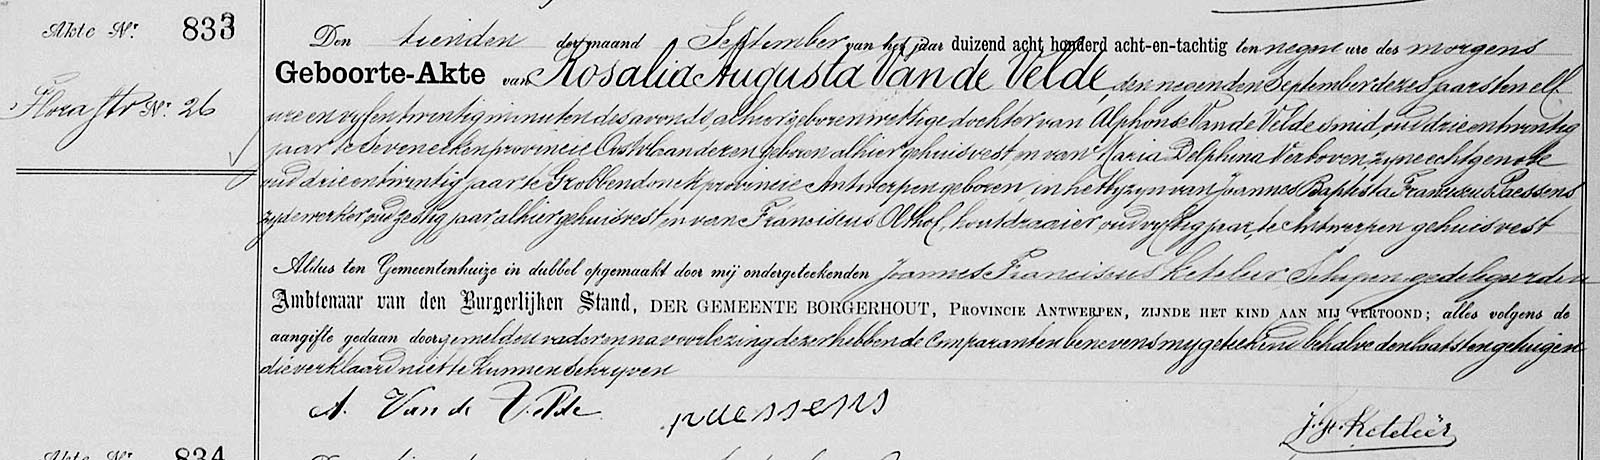 Akte Nr. 833
Florastr Nr. 26
Den tienden der maand September van het jaar duizend acht honderd acht-en-tachtig ten negen ure des morgens
Geboorte-Akte van Rosalia Augusta Van de Velde, den negenden September dezes jaars ten elf
ure en vyfentwintig minuten des avonds, alhier geboren wettige dochter van Alphons Van de Velde smid, oud drie en twintig
jaar te Seveneeken provincie Oostvlaanderen geboren alhier gehuisvest, en van Maria Delphina Verhoven zyne echtgenote
oud drie en twintig jaar te Grobbendonck provincie Antwerpen geboren, in het byzyn van Joannes Baptista Franciscus Paessens
zydewerker, oud zestig jaar, alhier gehuisvest en van Franciscus Olthof, houtdraaier, oud vyftig jaar, te Antwerpen gehuisvest
Aldus ten Gemeentenhuize in dubbel opgemaakt door mij ondergeteekenden Joannes Franciscus Keteleer Schepen gedelegeerden
Ambtenaar van den Burgerlijken Stand, DER GEMEENTE BORGERHOUT, PROVINCIE ANTWERPEN, ZIJNDE HET KIND AAN MIJ VERTOOND; alles volgens de
aangifte gedaan door gemelden vader en na voorlezing dezer hebben de Comparanten benevens my geteekend behalve den laatsten getuigen
die verklaard niet te kunnen schryven
A. Van de Velde paessens J. F. Keteleer
Akte Nr. 834